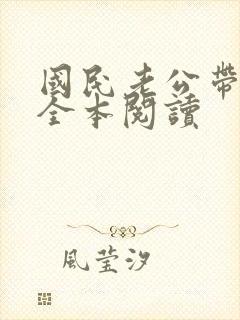 國民老公帶
全本閱讀
風瑩汐